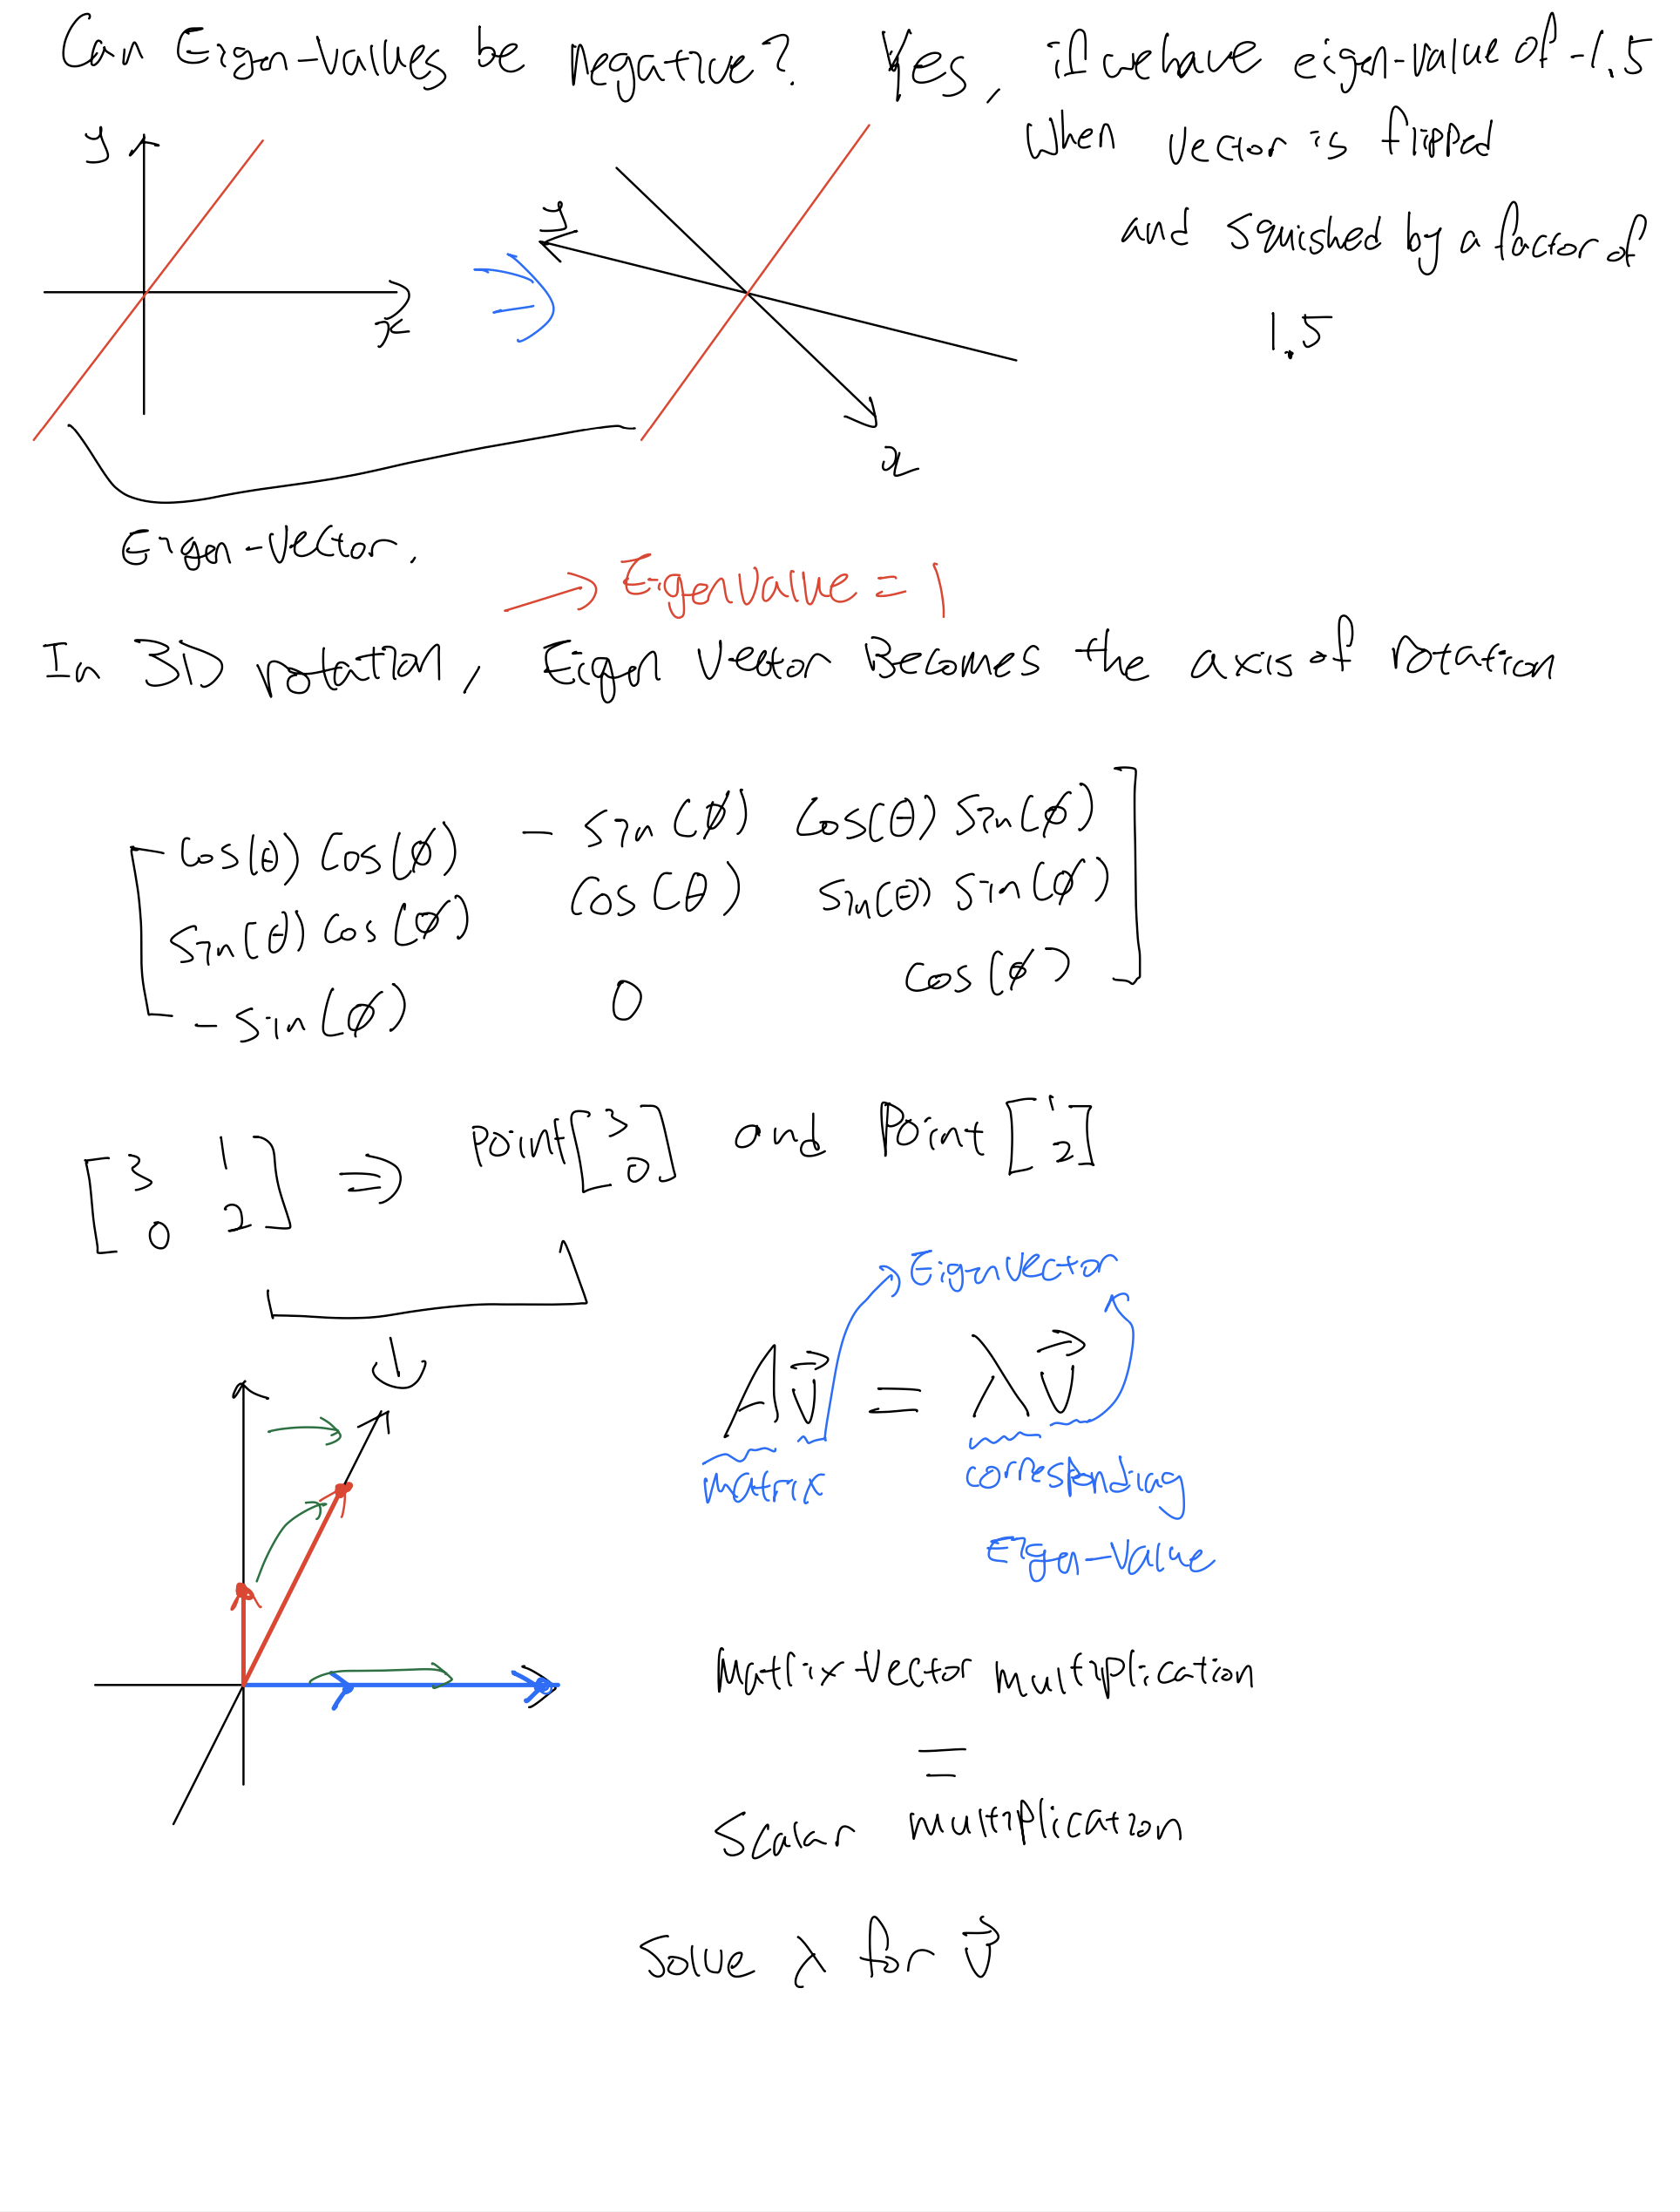 Can Eigen-values be negative? Yes, if we have eigen-value of -1.5
when vector is flipped
and squished by a factor of
1.5
y
x
y
x
Eigen-vector.
→ Eigenvalue = 1
In 3D rotation, Eigen Vector Becomes the axis of rotation
[ cos(θ) cos(φ) - sin(θ) cos(θ) sin(φ)
sin(θ) cos(φ) cos(θ) sin(θ) sin(φ)
- sin(φ) 0 cos(φ) ]
[ 3 1 ⇒ point [ 3 and Point [ 1
0 2 ] 0 ] 2 ]
Eigenvector
A v⃗ = λ v⃗
matrix corresponding
Eigen-value
Matrix-vector multiplication
=
Scalar multiplication
Solve λ for v⃗